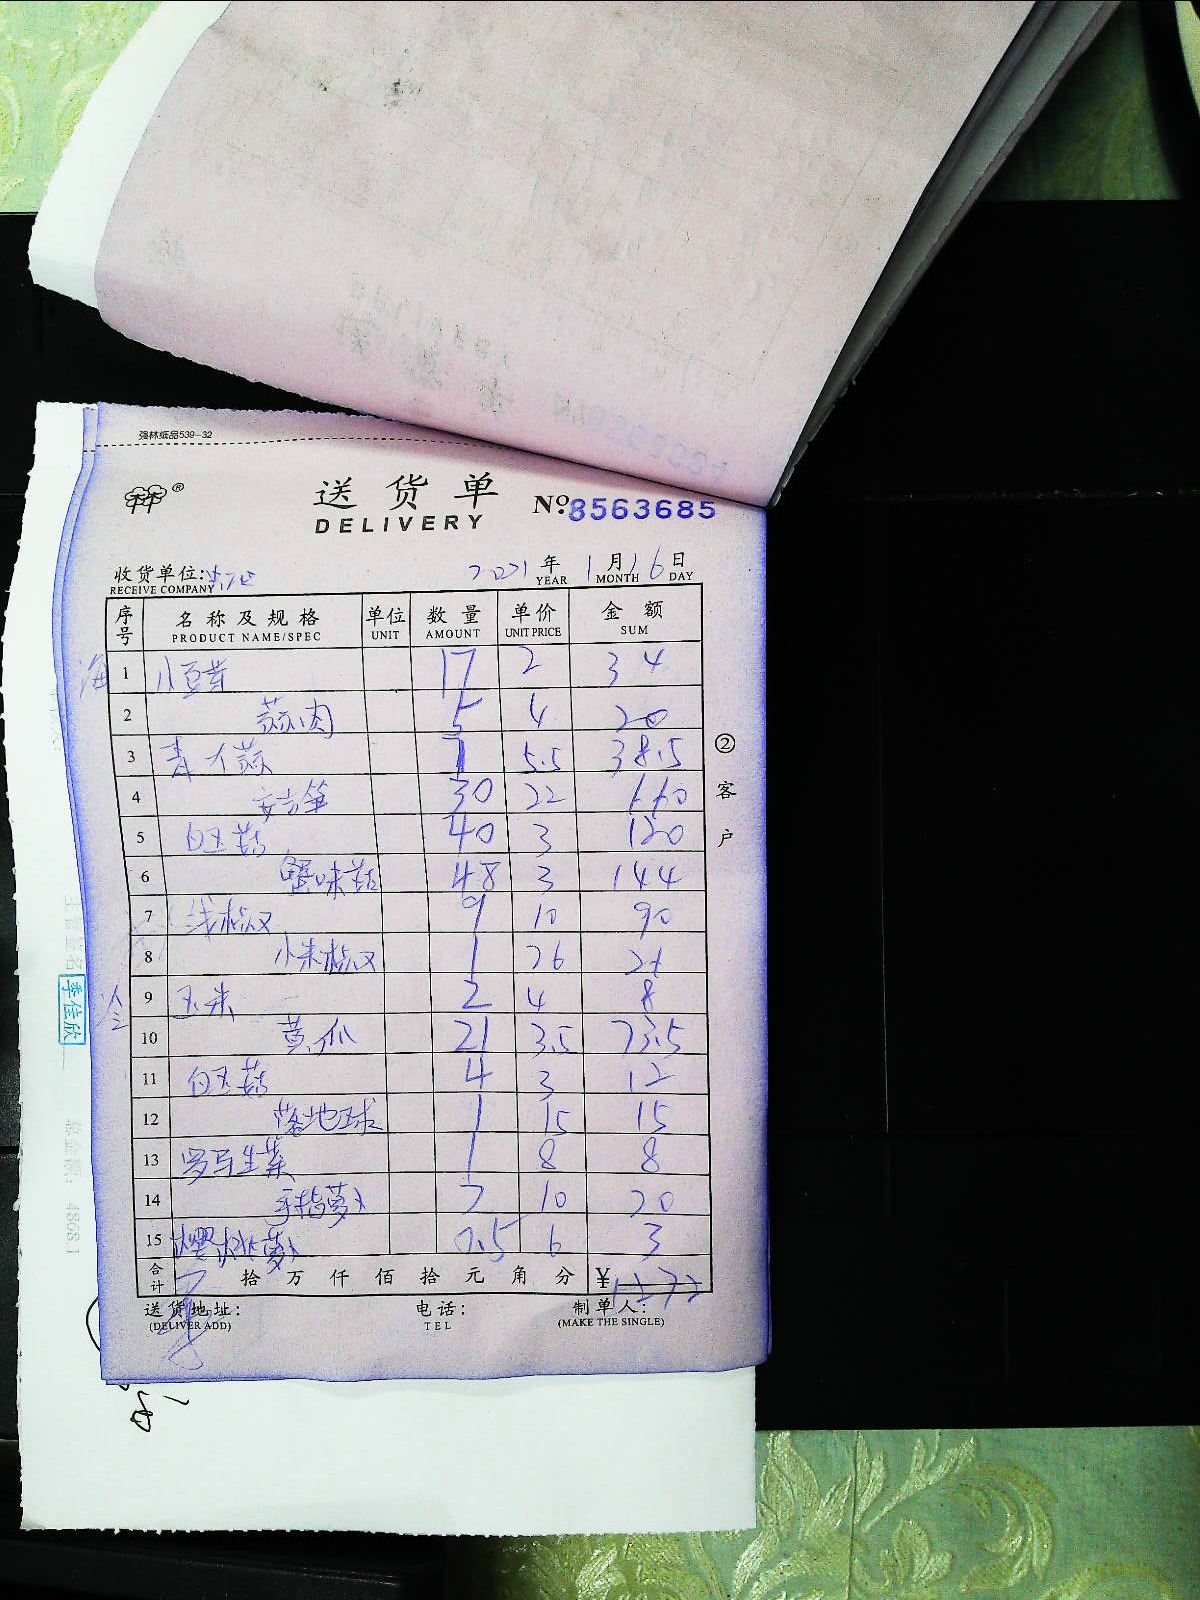 强林纸品539-32
送货单
DELIVERY
№ 8563685
收货单位:
RECEIVE COMPANY
2021 年 1 月 16 日
YEAR MONTH DAY
序号 名称及规格 单位 数量 单价 金额
PRODUCT NAME/SPEC UNIT AMOUNT UNIT PRICE SUM
海 1 小豆苗 17 2 34
2 蒜肉 5 4 20
3 青大蒜 7 5.5 38.5
4 安吉笋 30 22 660
5 白玉菇 40 3 120
6 蟹味菇 48 3 144
7 线椒 9 10 90
8 小米椒 1 26 26
9 玉米 2 4 8
10 黄瓜 21 3.5 73.5
11 白玉菇 4 3 12
12 落地球 1 15 15
13 罗马生菜 1 8 8
14 手指萝卜 2 10 20
15 樱桃萝卜 0.5 6 3
合计 拾 万 仟 佰 拾 元 角 分 ¥ 1272
送货地址: 电话: 制单人:
(DELIVER ADD) TEL (MAKE THE SINGLE)
②客户
季佳欣
总金额: 4868.1